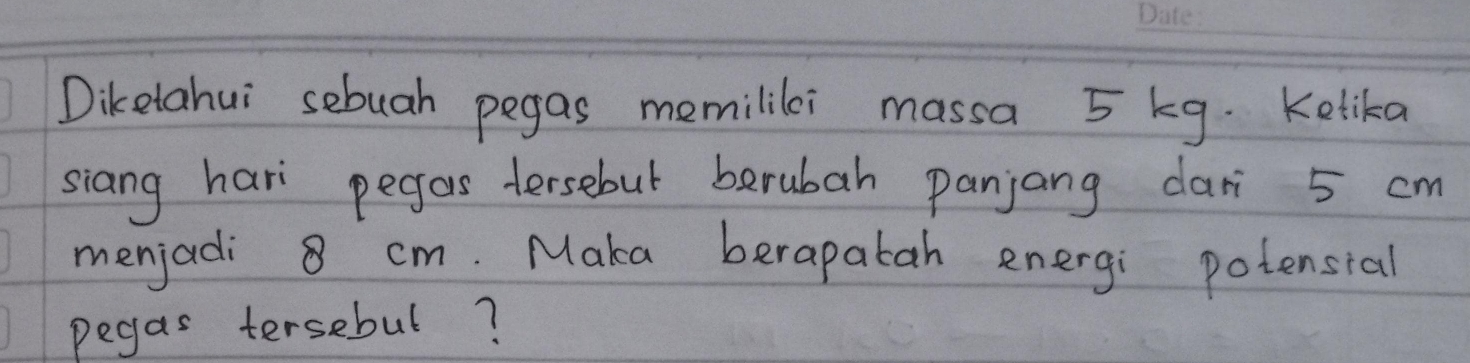 Date:
Diketahui sebuah pegas memiliki massa 5 kg. Ketika
siang hari pegas tersebut berubah panjang dari 5 cm
menjadi 8 cm. Maka berapakah energi potensial
pegas tersebut ?